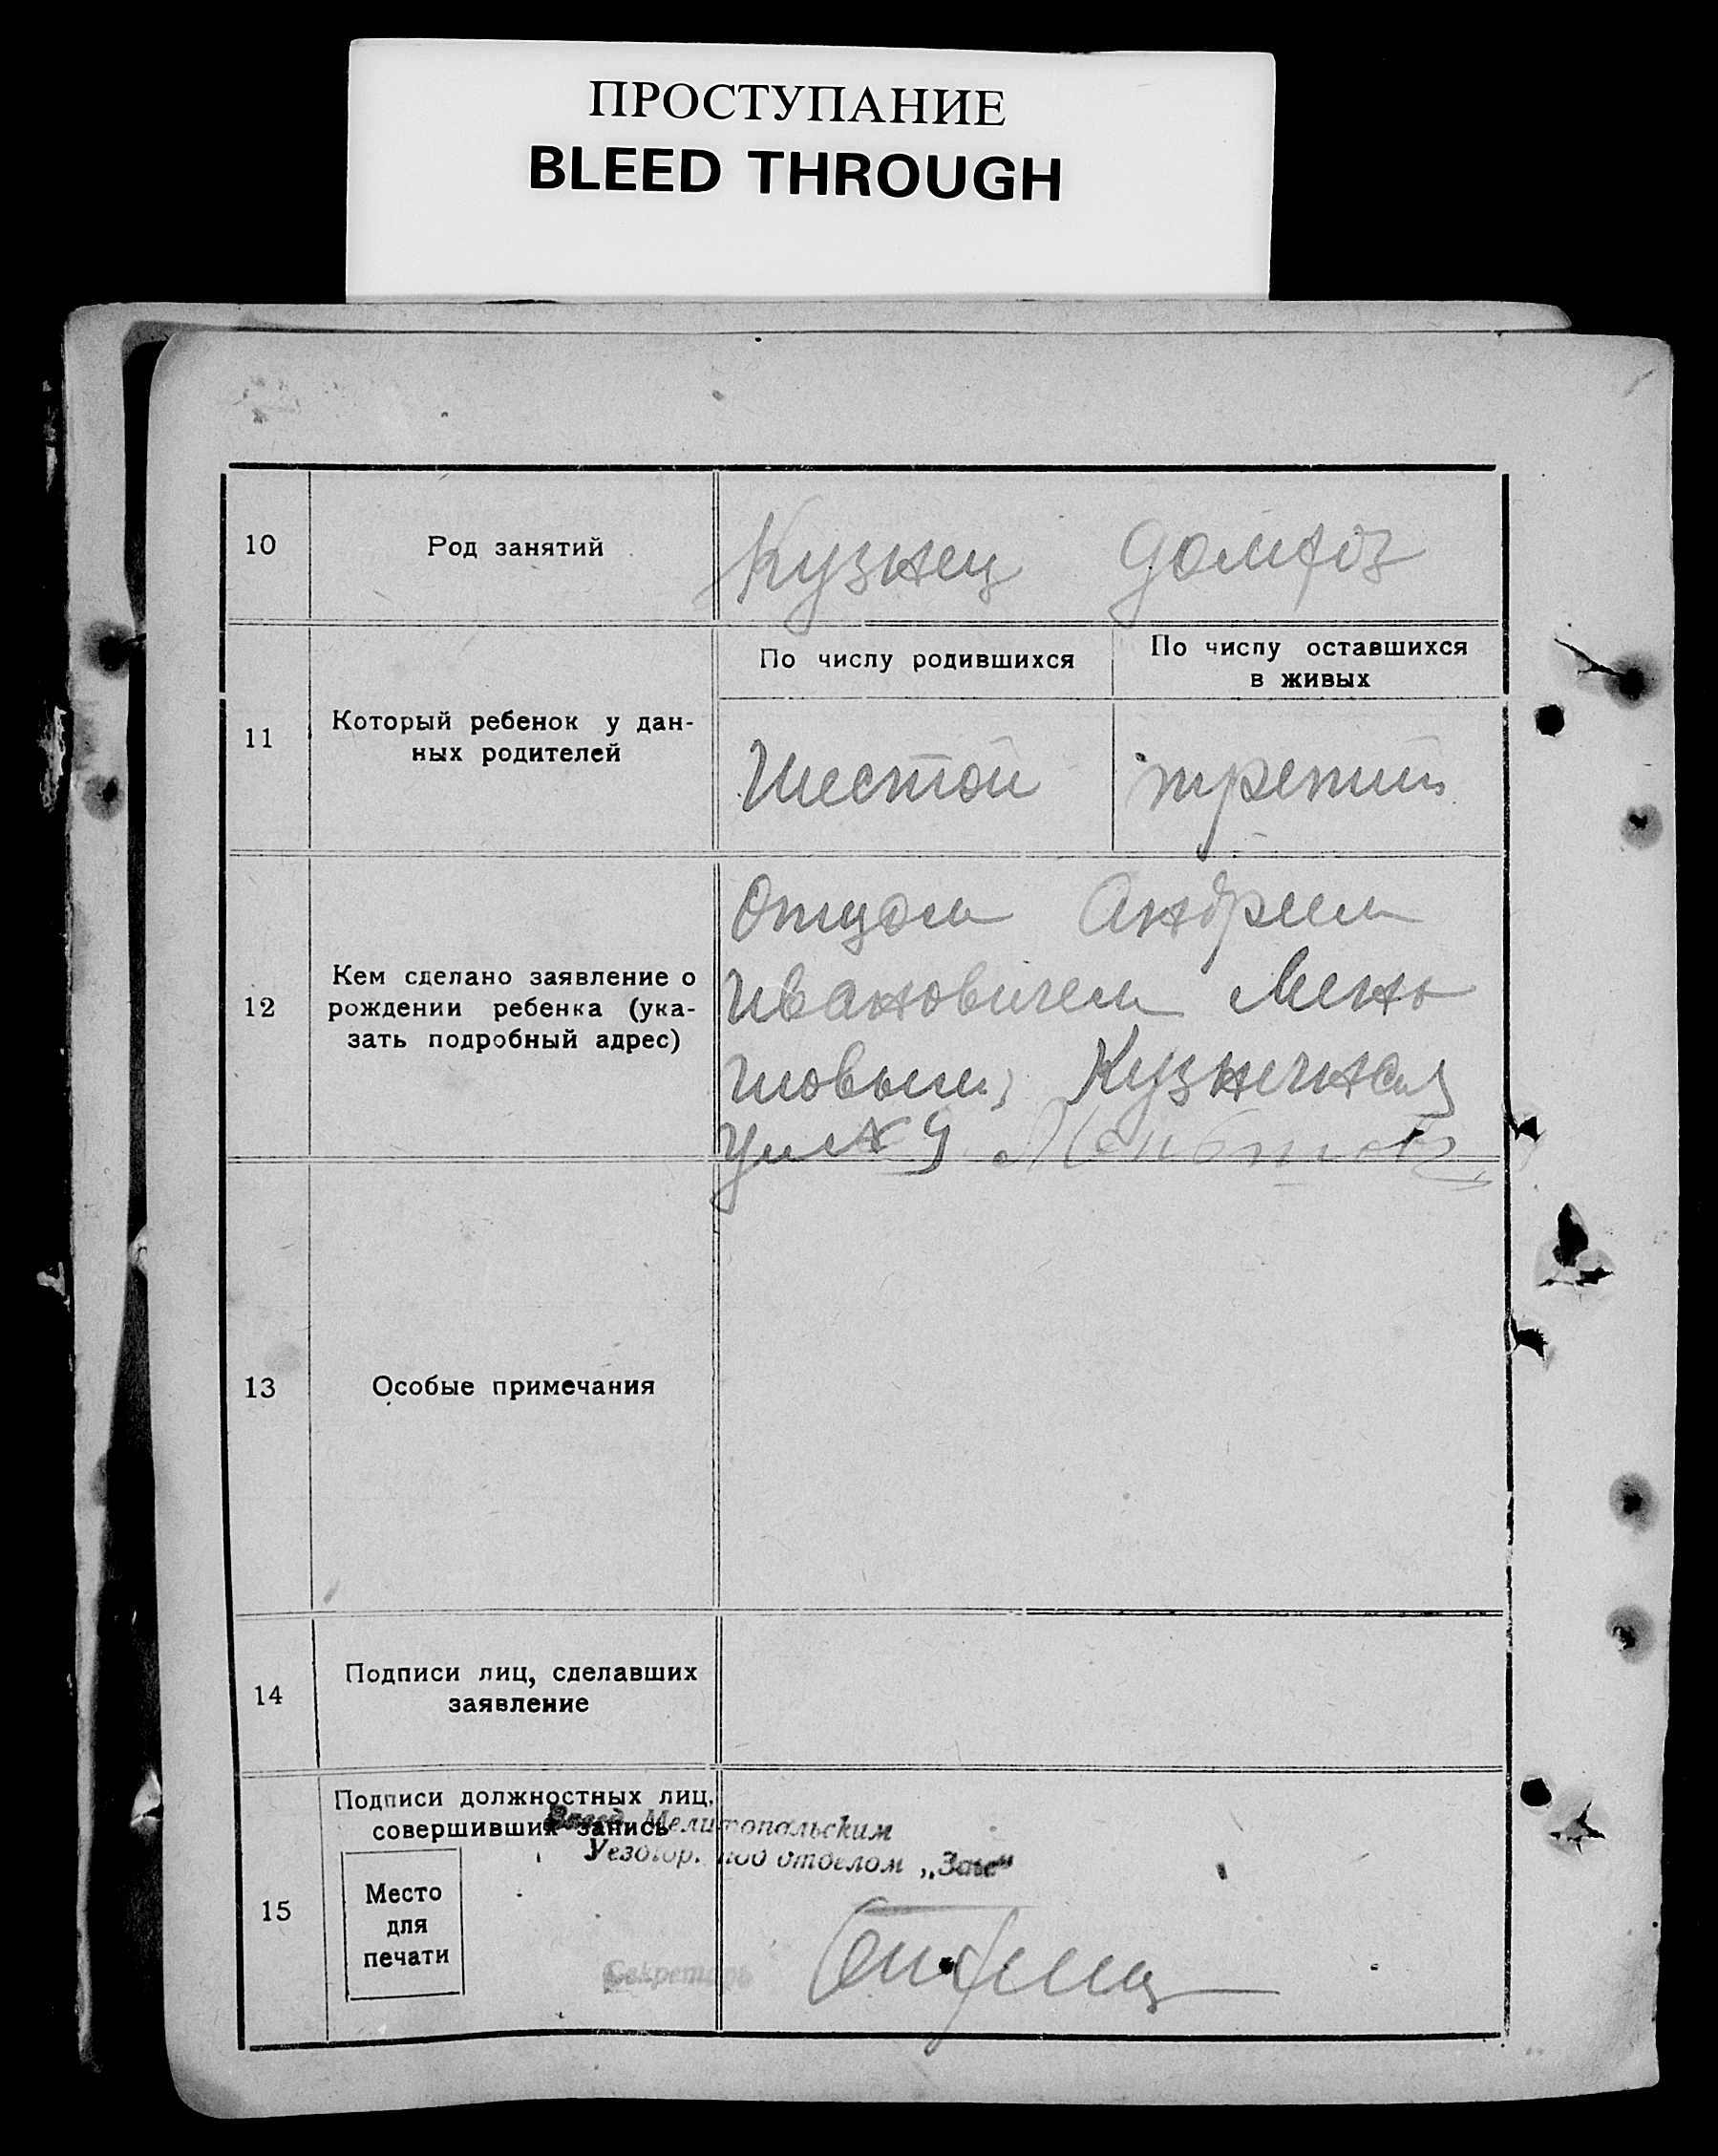 ПРОСТУПАНИЕ
BLEED THROUGH
10
Род занятий
Кузнец домхоз
11
Который ребенок у дан-
ных родителей
По числу родившихся
По числу оставшихся
в живых
Шестой
третий
12
Кем сделано заявление о
рождении ребенка (ука-
зать подробный адрес)
Отцом Андреем
Ивановичем Мень
шовым, Кузнечная
ул № 9
13
Особые примечания
14
Подписи лиц, сделавших
заявление
15
Подписи должностных лиц,
совершивших запись
Завед. Мелитопольским
Уездгор. под'отделом „Загс"
Место
для
печати
Секретарь